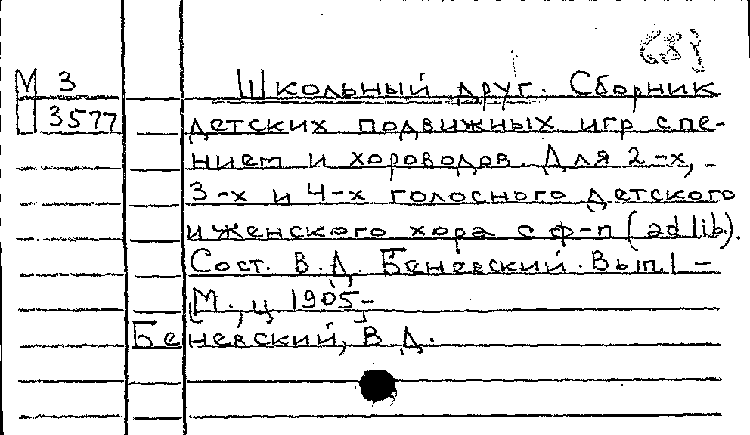 М 3 Школьный друг. Сборник
Ш 3577 детских подвижных игр с пе-
нием и хороводов. Для 2-х,
3-х и 4-х голосного детского
и женского хора с ф-п (ad lib).
Сост. В.Д. Беневский. Вып.1 –
М., ц 1905-
Беневский, В.Д.